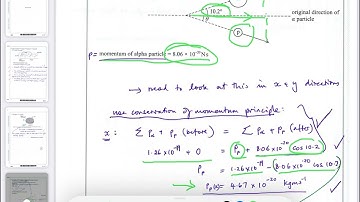 10.2°
θ
P
original direction of
α particle
P = momentum of alpha particle = 8.06 × 10⁻²⁰ Ns
→ need to look at this in x & y directions
use conservation of momentum principle:
x: ΣPα + Pp (before) = ΣPα + Pp (after)
1.26×10⁻¹⁹ + 0 = Pp + 8.06×10⁻²⁰ cos10.2
Pp = 1.26×10⁻¹⁹ - (8.06×10⁻²⁰ cos10.2)
→ Pp(x) = 4.67×10⁻²⁰ kgms⁻¹